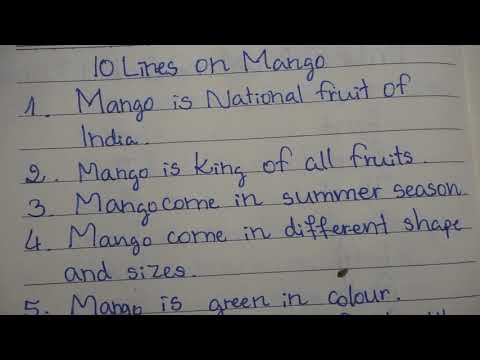 10 Lines on Mango
1. Mango is National fruit of
India.
2. Mango is King of all fruits.
3. Mango come in summer season
4. Mango come in different shape
and sizes.
5. Mango is green in colour.